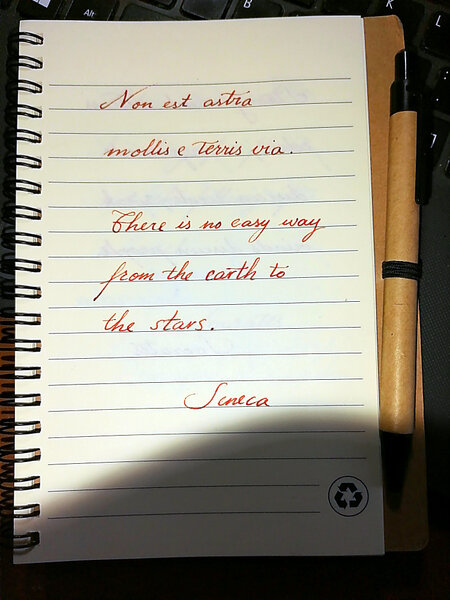 Alt
Non est astria
mollis e terris via.
There is no easy way
from the earth to
the stars.
Seneca